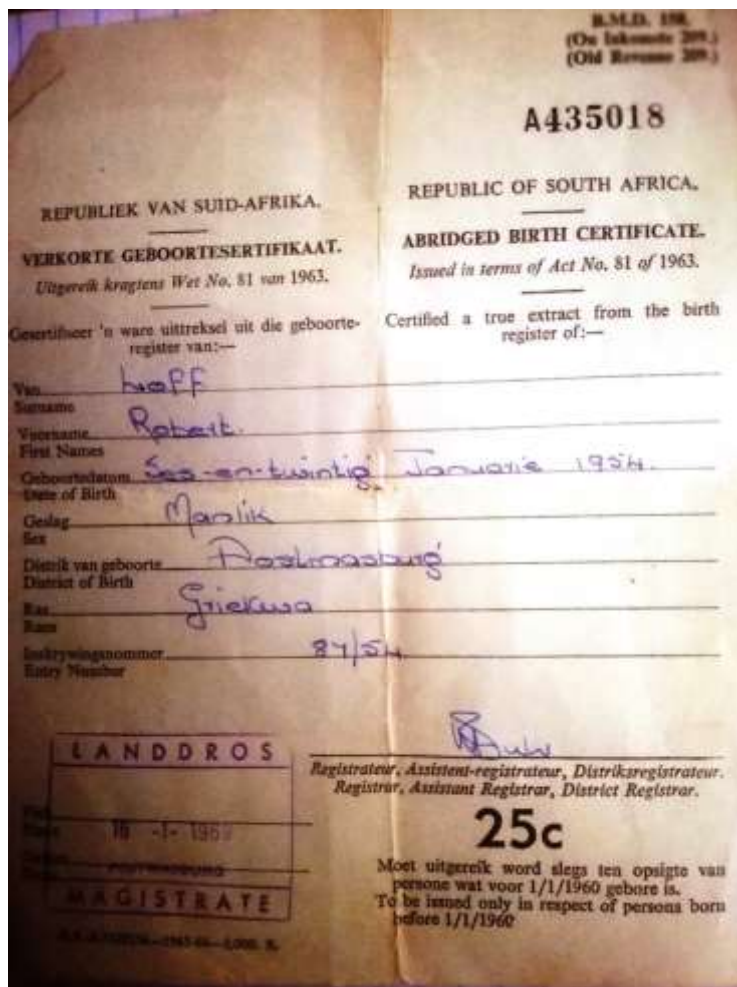 B.M.D. 158.
(Ou Inkomste 209.)
(Old Revenue 209.)
A435018
REPUBLIEK VAN SUID-AFRIKA.
VERKORTE GEBOORTESERTIFIKAAT.
Uitgereik kragtens Wet No. 81 van 1963.
Gesertifiseer 'n ware uittreksel uit die geboorte-
register van:—
REPUBLIC OF SOUTH AFRICA.
ABRIDGED BIRTH CERTIFICATE.
Issued in terms of Act No. 81 of 1963.
Certified a true extract from the birth
register of:—
Van
Surname
Voorname Robert.
First Names
Geboortedatum Ses-en-twintig Januarie 1954.
Date of Birth
Geslag Manlik
Sex
Distrik van geboorte Postmasburg
District of Birth
Ras Griekwa
Race
Inskrywingsnommer 87/54
Entry Number
LANDDROS
16 -1- 1969
POSTMASBURG
MAGISTRATE
Registrateur, Assistent-registrateur, Distriksregistrateur.
Registrar, Assistant Registrar, District Registrar.
25c
Moet uitgereik word slegs ten opsigte van
persone wat voor 1/1/1960 gebore is.
To be issued only in respect of persons born
before 1/1/1960